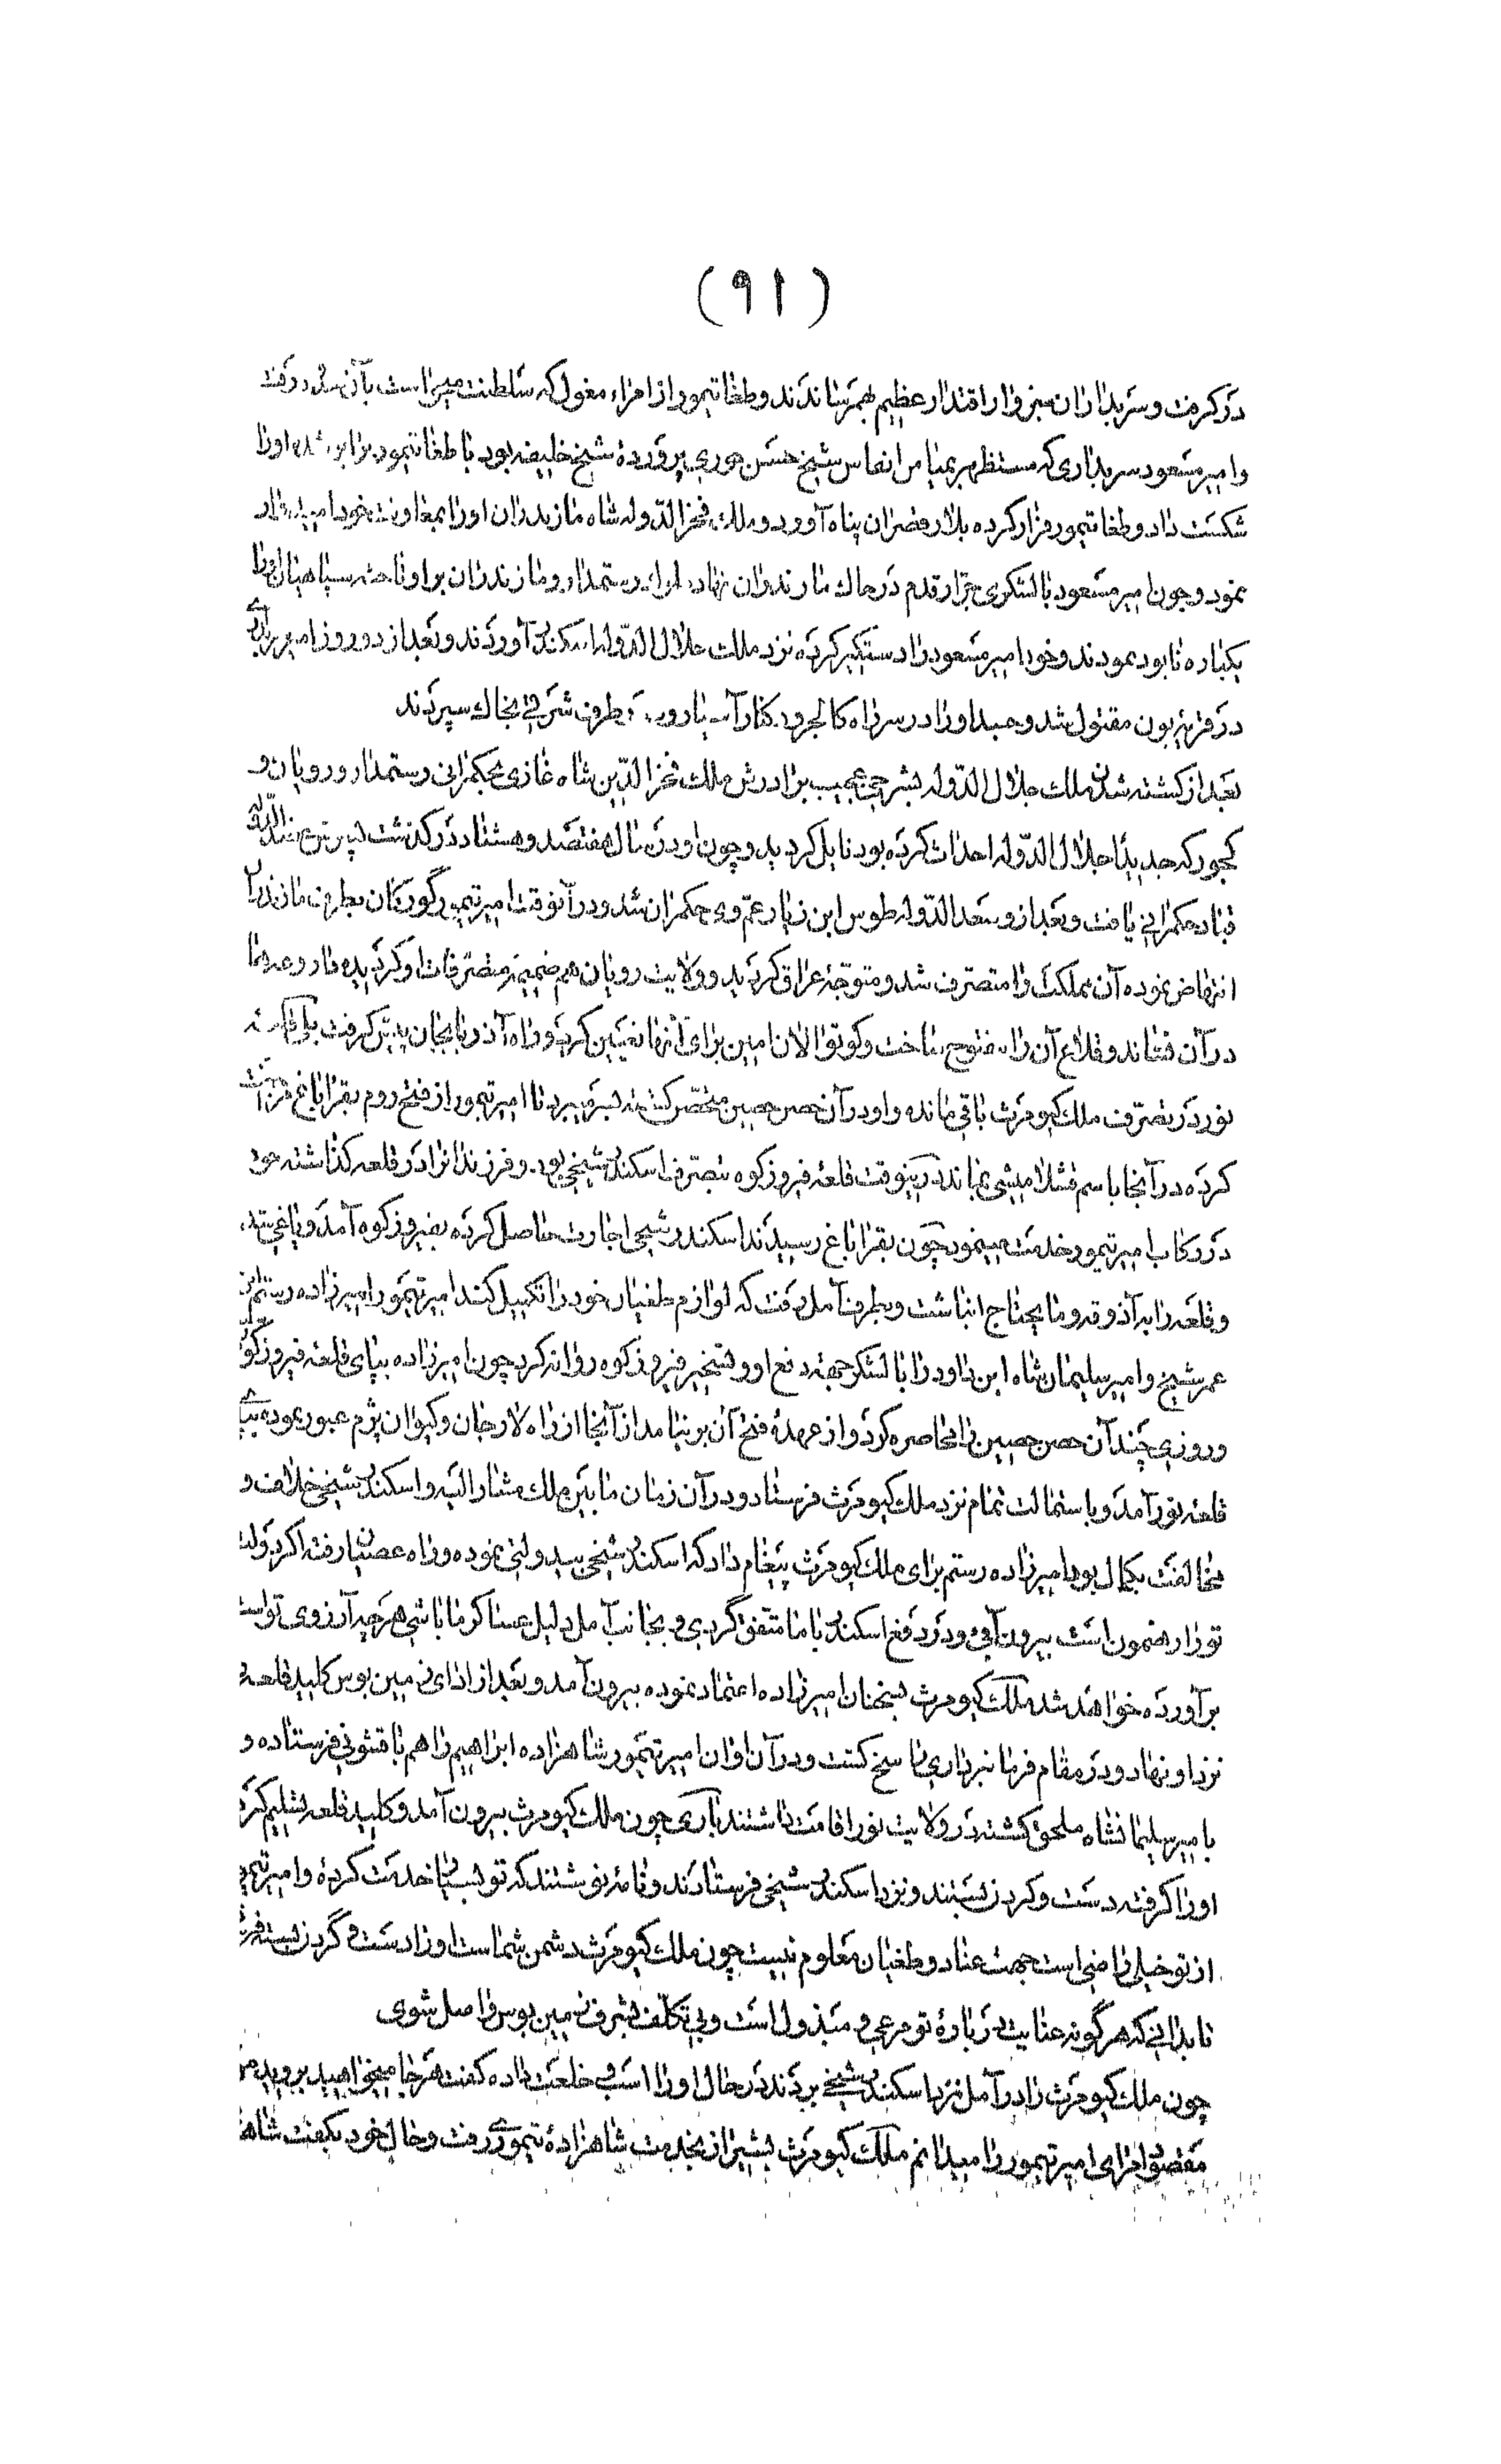 (۹۱)
درگرفت و سربداران سبزوار اقتدار عظیم بهمرسانیدند و طغاتیمور از امراء مغول که سلطنت
و امیر مسعود سربداری که مستظهر بمیامن انفاس شیخ حسن جوری پرورده شیخ خلیفه بود با طغاتیمور برابر اورا
شکست داد و طغاتیمور فرار کرده بلار قصران پناه آورد و ملک فخرالدّوله شاه مازندران اورا بمعاونت خود امیدوار
نمود و چون امیر مسعود با لشکری جرّار قدم در خاك مازندران نهاد رستمدار و مازندران بر او تاخته سپاهیان اورا
یکباره نابود نمودند و خود امیر مسعود را دستگیر کرده نزد ملك جلال الدّوله اسکندر آوردند و بعد از دو روز امیر
در قریه بون مقتول شد و جسد اورا در سر راه کالجرود کنار آب بطرف شرقی بخاك سپردند
بعد از کشته شدن ملك جلال الدّوله بشرحی عجیب برادرش ملك فخرالدّین شاه غازی بحکمرانی رستمدار و رویان و
کجور که جدیدًا جلال الدّوله احداث کرده بود نایل گردید و چون او در سال هفتصد و هشتاد درگذشت پسرش عضدالدّوله
قباد حکمرانی یافت و بعد از و سعدالدّوله طوس ابن زیار عمّ وی حکمران شد و درآنوقت امیر تیمور گورکان بطرف مازندران
انتهاض نموده آن مملکت را متصرّف شد و متوجّه عراق گردید و ولایت رویان هم ضمیمه متصرّفات او گردیده داروغه ها
در آن نشاند و قلاع آن را مفتوح ساخت و کوتوالان امین برای آنها تعیین کرد و راه آذربایجان پیش گرفت
نور در تصرّف ملك کیومرث باقی مانده و او در آن حصن حصین متحصّن گشته بسر میبرد تا امیر تیمور از فتح روم بقراباغ
کرده در آنجا باسم قشلامیشی بماند درینوقت قلعه فیروزکوه بتصرف اسکندر شیخی بود و فرزندانرا در قلعه گذاشته خود
در رکاب امیر تیمور خدمت مینمود چون بقراباغ رسیدند اسکندر شیخی اجازت حاصل کرده بفیروزکوه آمد و یاغی شد
و قلعه را بآذوقه و مایحتاج انباشت و بطرف آمل رفت که لوازم طغیان خود را تکمیل کند امیر تیمور امیرزاده رستم ابن
عمر شیخ و امیر سلیمان شاه ابن داود را با لشکر جهته دفع او و تسخیر فیروزکوه روانه کرد چون امیرزاده بپای قلعه فیروزکوه
و روزی چند آن حصن حصین را محاصره کرد و از عهده فتح آن برنیامد از آنجا از راه لارجان و کیوان پژم عبور نموده بپای
قلعه نور آمد و باستمالت تمام نزد ملك کیومرث فرستاد و در آن زمان مابین ملك مشارالیه و اسکندر شیخی خلاف و
مخالفت بکمال بود امیرزاده رستم برای ملك کیومرث پیغام داد که اسکندر شیخی بیدولتی نموده و راه عصیان رفته اگر دولت
تو را رهنمون است بیرون آئی و در دفع اسکندر با ما متفق گردی و بجانب آمل دلیل عساکر ما باشی هرچه آرزوی تواست
برآورده خواهد شد ملك کیومرث بسخنان امیرزاده اعتماد نموده بیرون آمد و بعد از ادای زمین بوس کلید قلعه
نزد او نهاد و در مقام فرمانبرداری راسخ گشت و در آن اوان امیر تیمور شاهزاده ابراهیم را هم با قشونی فرستاده و
بامیر سلیمانشاه ملحق گشته در ولایت نور اقامت داشتند باری چون ملك کیومرث بیرون آمد و کلید قلعه تسلیم کرد
اورا گرفته دست و گردن بستند و نزد اسکندر شیخی فرستادند و نامه نوشتند که تو بسی خدمت کرده و امیر تیمور
از تو خیلی راضی است جهت عناد و طغیان معلوم نیست چون ملك کیومرث دشمن شماست اورا دست و گردن بسته
تا بدانی که هر گونه عنایت در باره تو مرعی و مبذول است و بی تکلّف بشرف زمین بوس واصل شوی
چون ملك کیومرث را در آمل نزد اسکندر شیخی بردند در حال اورا اسب و خلعت داده گفت هرجا میخواهید بروید من
مقصود امرای امیر تیمور را میدانم ملك کیومرث بشیراز بخدمت شاهزاده تیموری رفت و حال خود بگفت